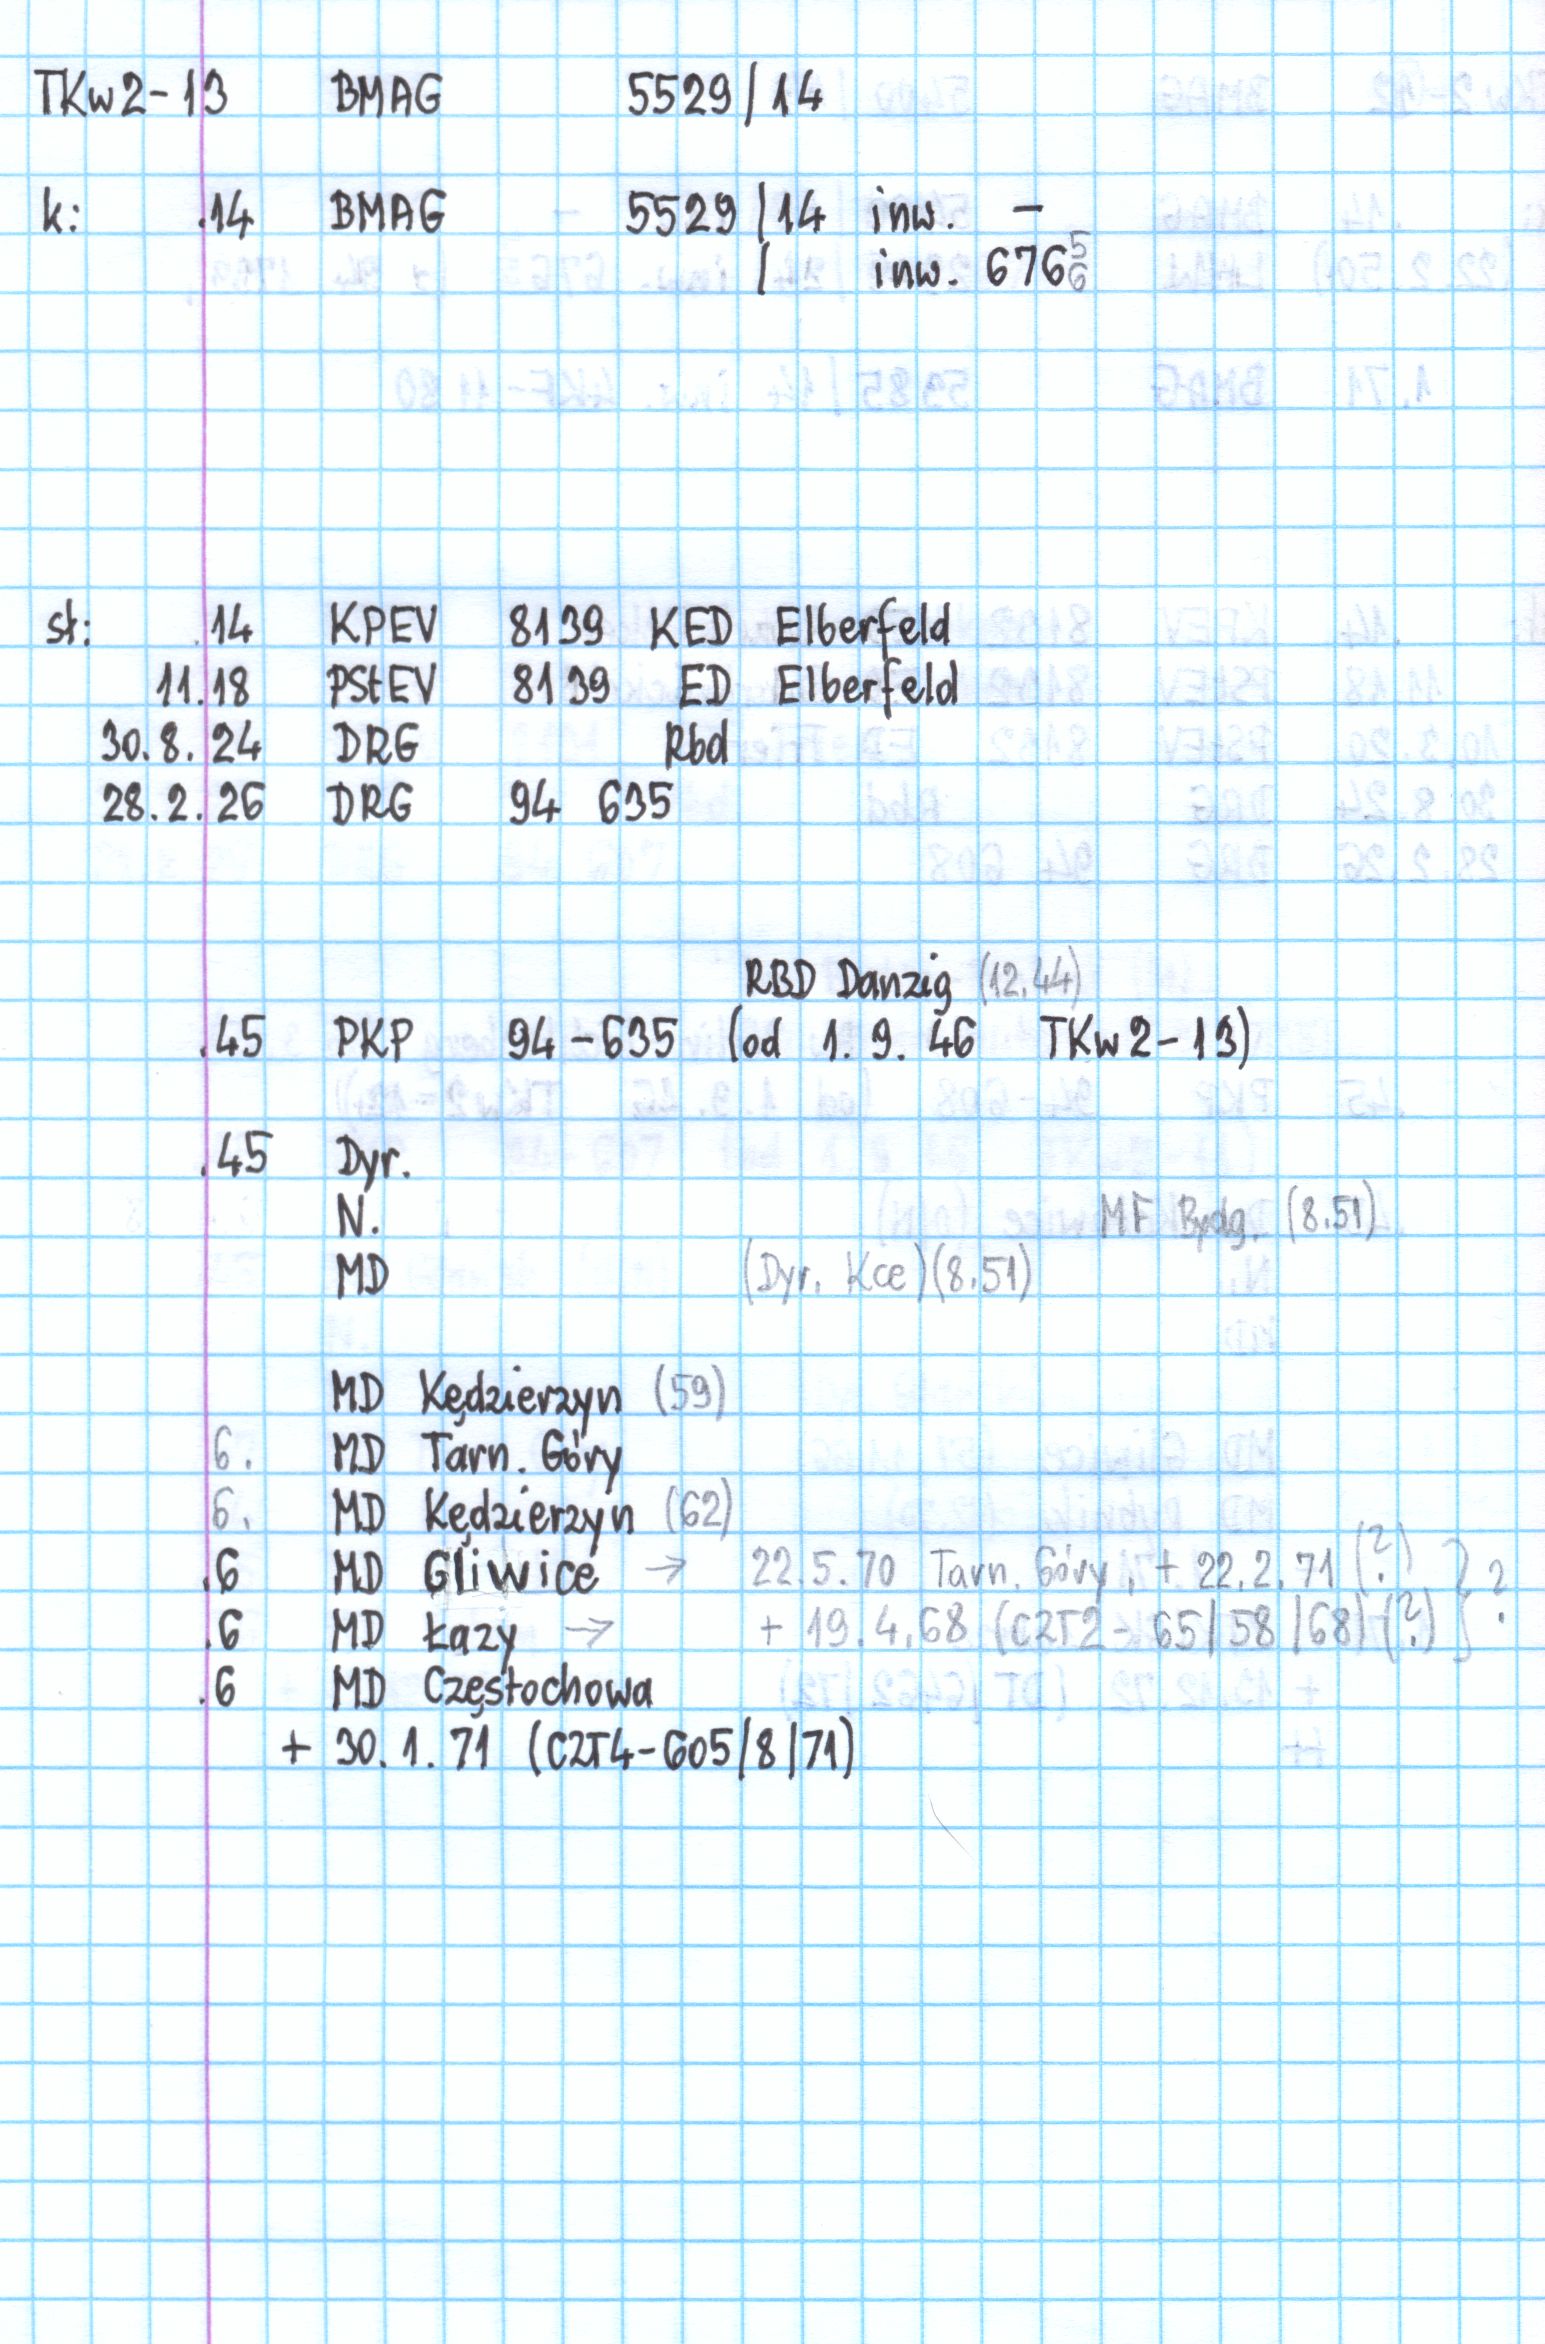 TKw2-13 BMAG 5529/14
k: .14 BMAG 5529/14 inw. -
/ inw. 676 5 6
st: .14 KPEV 8139 KED Elberfeld
11.18 PStEV 8139 ED Elberfeld
30.8.24 DRG Rbd
28.2.26 DRG 94 635
RBD Danzig (12.44)
.45 PKP 94-635 (od 1.9.46 TKw2-13)
.45 Dyr.
N. MF Bydg. (8.51)
MD (Dyr. Kce)(8.51)
MD Kędzierzyn (59)
6. MD Tarn. Góry
6. MD Kędzierzyn (62)
.6 MD Gliwice → 22.5.70 Tarn. Góry, + 22.2.71 (?) } ?
.6 MD Łazy → + 19.4.68 (C2T2-65/58/68) (?)
.6 MD Częstochowa
+ 30.1.71 (C2T4-605/8/71)